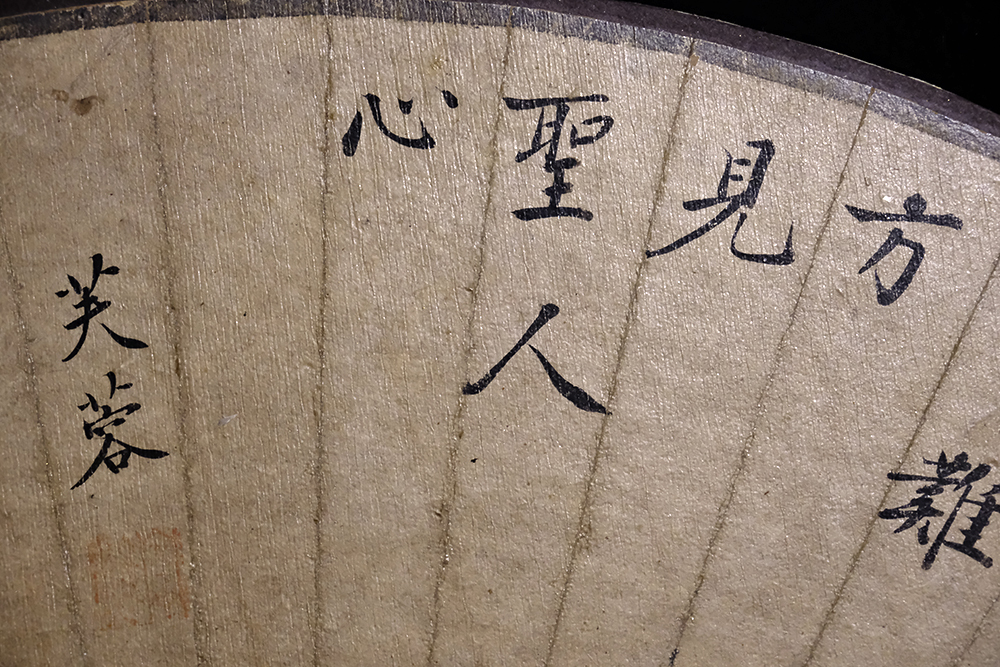 難
方
見
聖人
心
芙蓉